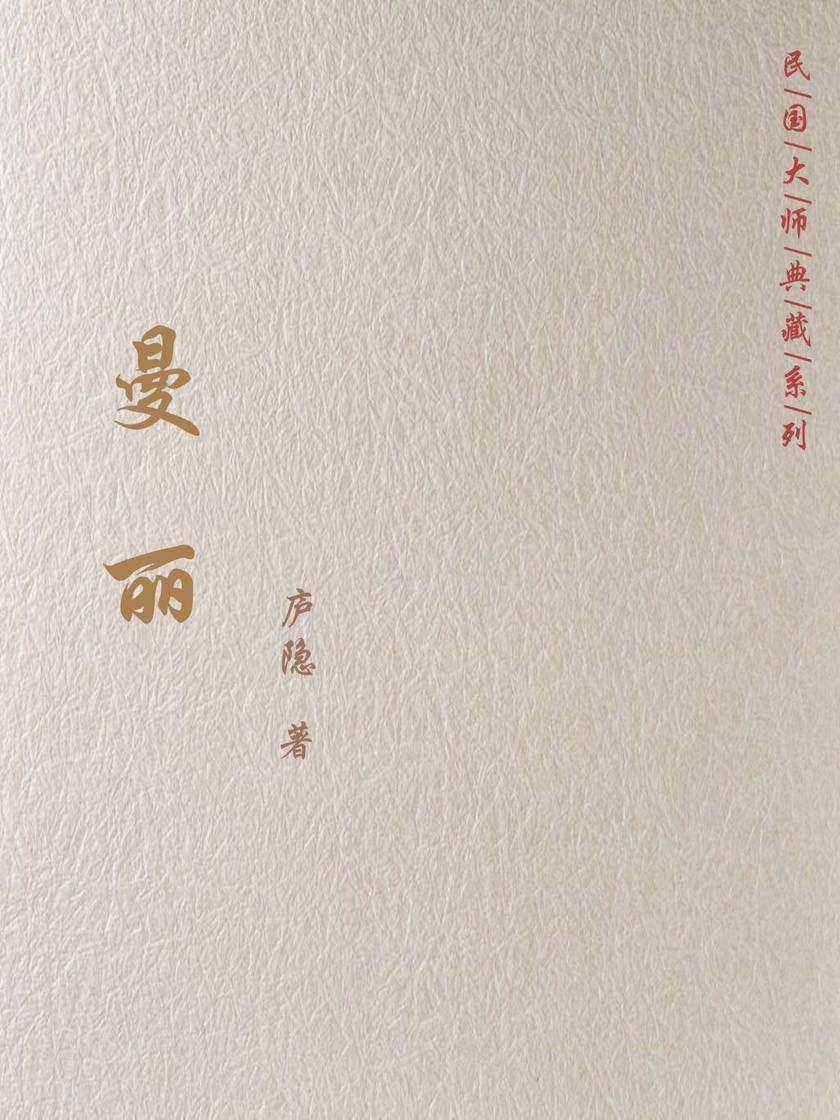 民/国/大/师/典/藏/系/列
曼丽
庐隐 著